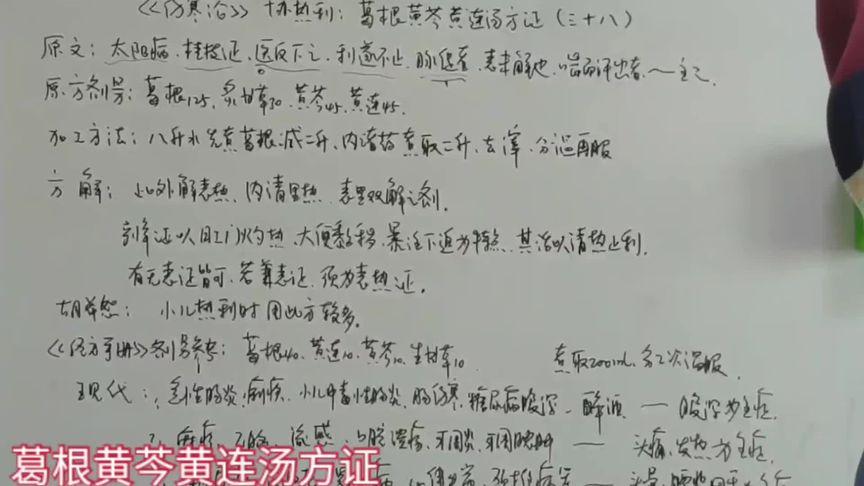 《伤寒论》 协热利：葛根黄芩黄连汤方证（三十八）
原文：太阳病、桂枝证、医反下之、利遂不止、脉促者、表未解也、喘而汗出者、～主之.
原方剂量：葛根125、炙甘草30、黄芩45、黄连45.
加工方法：八升水先煮葛根、减二升、内诸药煮取二升、去滓、分温再服
方解：此外解表热、内清里热、表里双解之剂.
大便黏秽、暴注下迫为特点、其治以清热止利.
有无表证皆可、若兼表证、须为表热证.
胡希恕：小儿热利时用此方较多.
《经方手册》剂量参考：葛根40、黄连10、黄芩10、生甘草10 煮取200ml、分2次温服.
现代：急性肠炎、痢疾、小儿中毒性肠炎、肠伤寒、糖尿病腹泻、醉酒 — 腹泻为主症.
流感、口腔溃疡、牙周炎、牙周脓肿 — 头痛、发热为主症.
葛根黄芩黄连汤方证